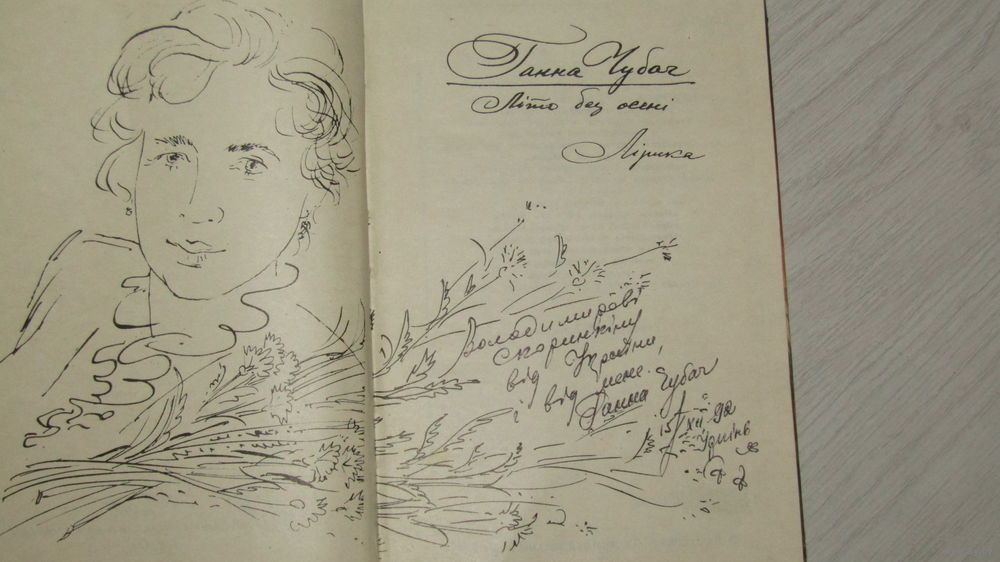 Ганна Чубач
Літо без осені
Лірика
Володимирові
Скоринкіну
від України,
і від мене.
Ганна Чубач
15/XII 92
Ірпінь